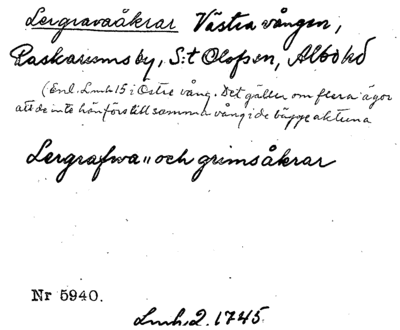 Lergravaåkrar Västra vången,
Raskarumsby, S:t Olofsen, Albo hd
(Enl. Lmh 15 i Östre vång. Det gäller om flera ägor
att de inte hänförs till samma vång i de bägge akterna
Lergrafwa" och grimsåkrar
Nr 5940.
Lmh, 2. 1745.